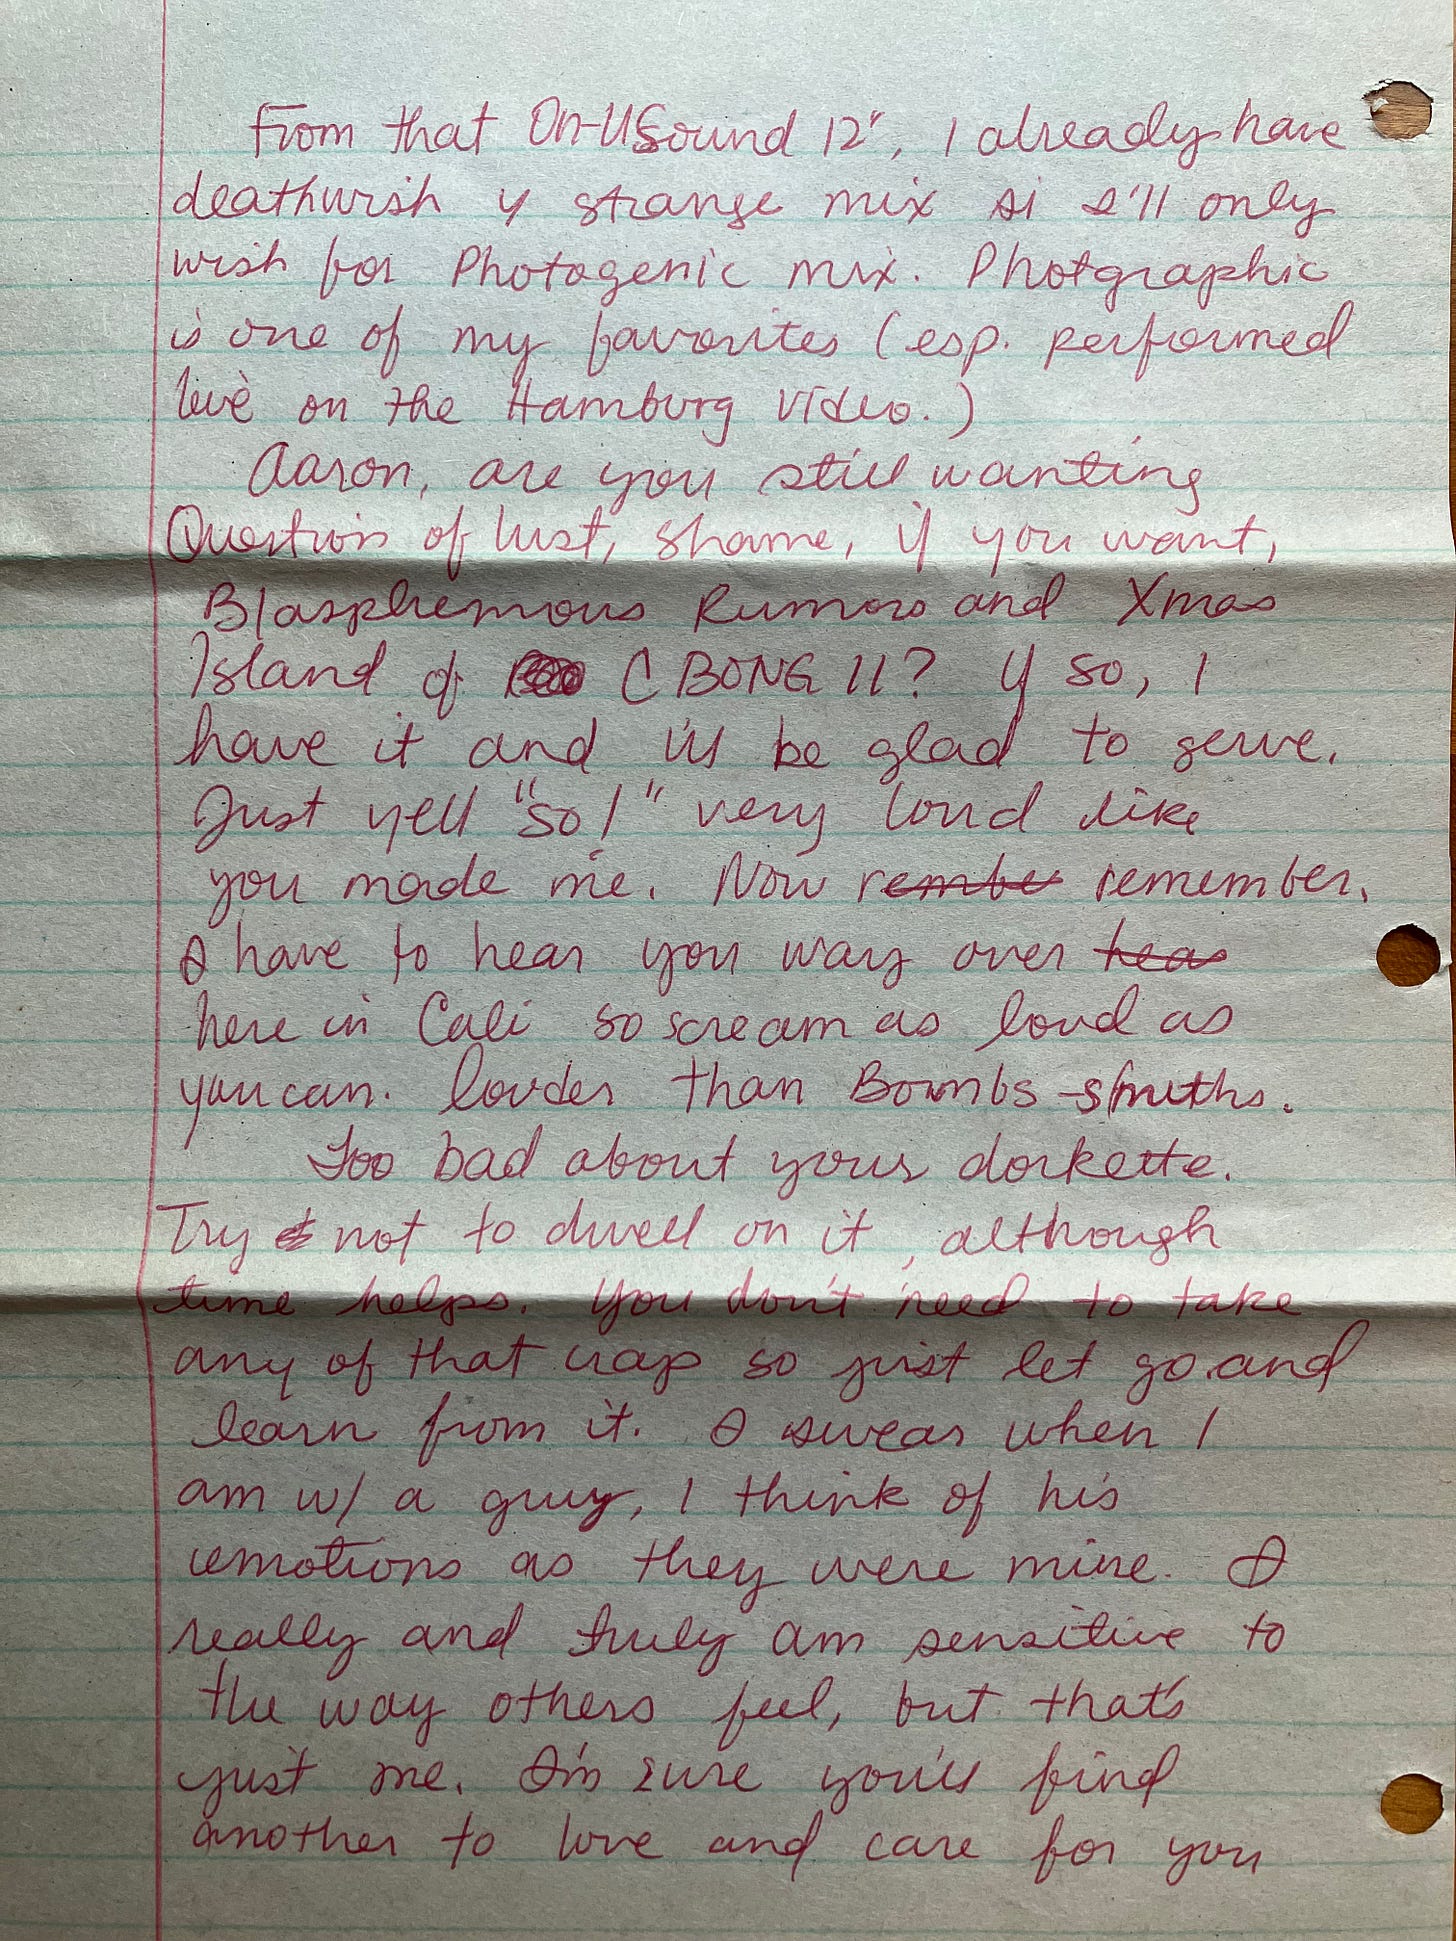 From that On-USound 12", I already have
deathwish y strange mix si I'll only
wish for Photogenic mix. Photgraphic
is one of my favorites (esp. performed
live on the Hamburg video.)
Aaron, are you still wanting
Question of lust, shame, if you want,
Blasphemous Rumors and Xmas
Island of C BONG 11? If so, I
have it and i'll be glad to serve.
Just yell "so!" very loud like
you made me. Now rembe remember.
I have to hear you way over heas
here in Cali so scream as loud as
you can. louder than Bombs -smiths.
Too bad about your dorkette.
Try not to dwell on it, although
time helps. You don't need to take
any of that crap so just let go and
learn from it. I swear when I
am w/ a guy, I think of his
emotions as they were mine. I
really and truly am sensitive to
the way others feel, but that's
just me. I'm sure you'll find
another to love and care for you